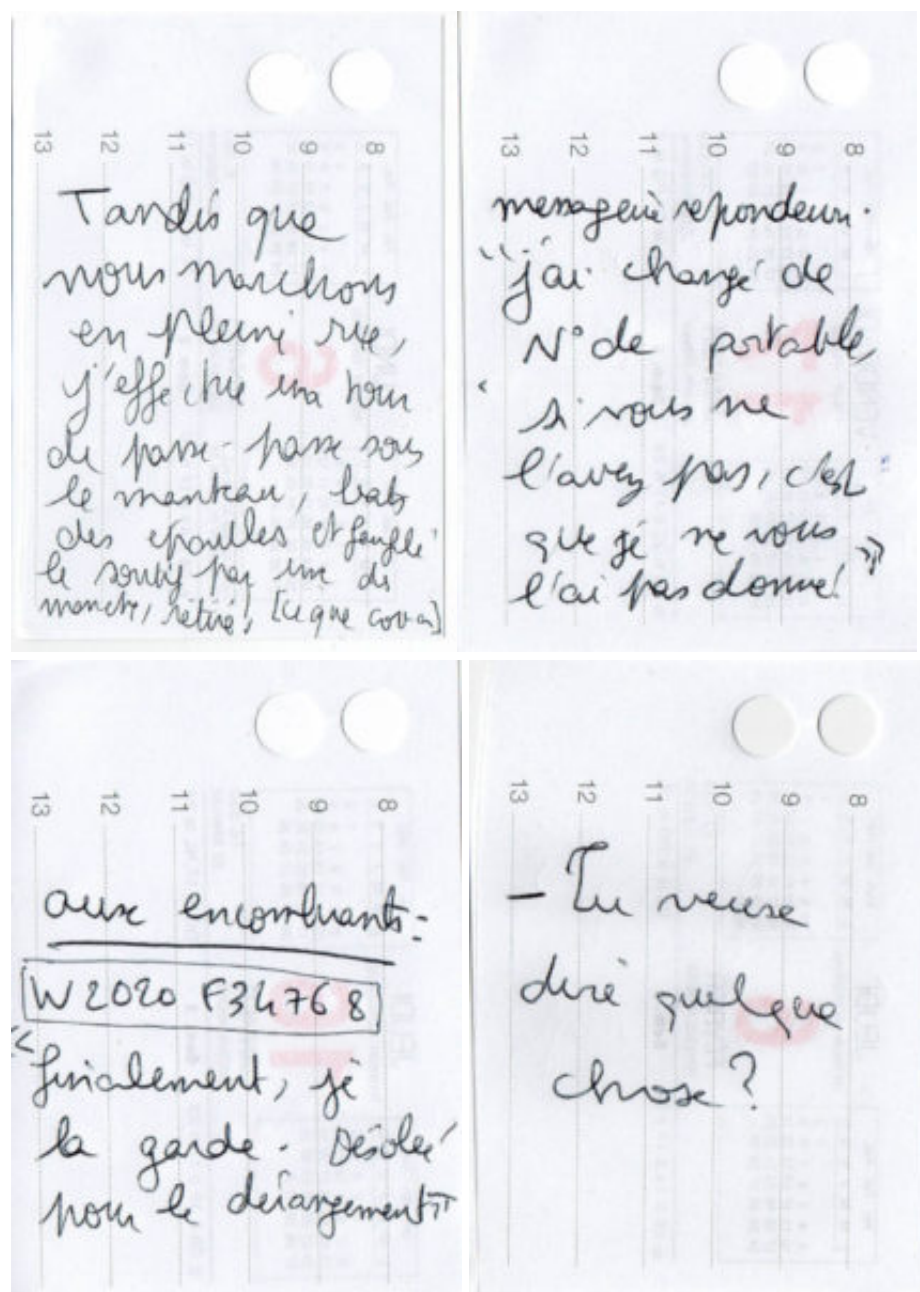 13 12 11 10 9 8
Tandis que
nous marchons
en pleine rue,
j'effectue un tour
de passe-passe sous
le manteau,
des epaulles et
le soutif par une de
manche, retiré! [ce que
13 12 11 10 9 8
messagerie repondeur.
"j'ai changé de
N° de portable,
si vous ne
l'avez pas, c'est
que je ne vous
l'ai pas donné! »
13 12 11 10 9 8
aux encombrants:
W2020 F34768
« finalement, je
la garde. Désolée
pour le dérangement"
13 12 11 10 9 8
- Tu veux
dire quelque
chose?